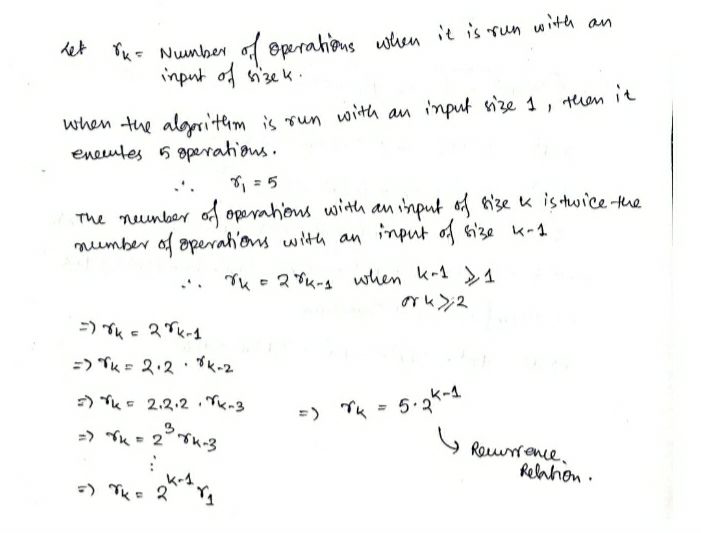 Let r_k = Number of operations when it is run with an
input of size k.
when the algorithm is run with an input size 1, then it
executes 5 operations.
∴ r_1 = 5
The number of operations with an input of size k is twice the
number of operations with an input of size k-1
∴ r_k = 2 r_{k-1} when k-1 ⩾ 1
or k ⩾ 2
=) r_k = 2 r_{k-1}
=) r_k = 2.2 . r_{k-2}
=) r_k = 2.2.2 . r_{k-3}
=) r_k = 2^3 r_{k-3}
⋮
=) r_k = 2^{k-1} r_1
=) r_k = 5.2^{k-1}
↳ Recurrence.
Relation.